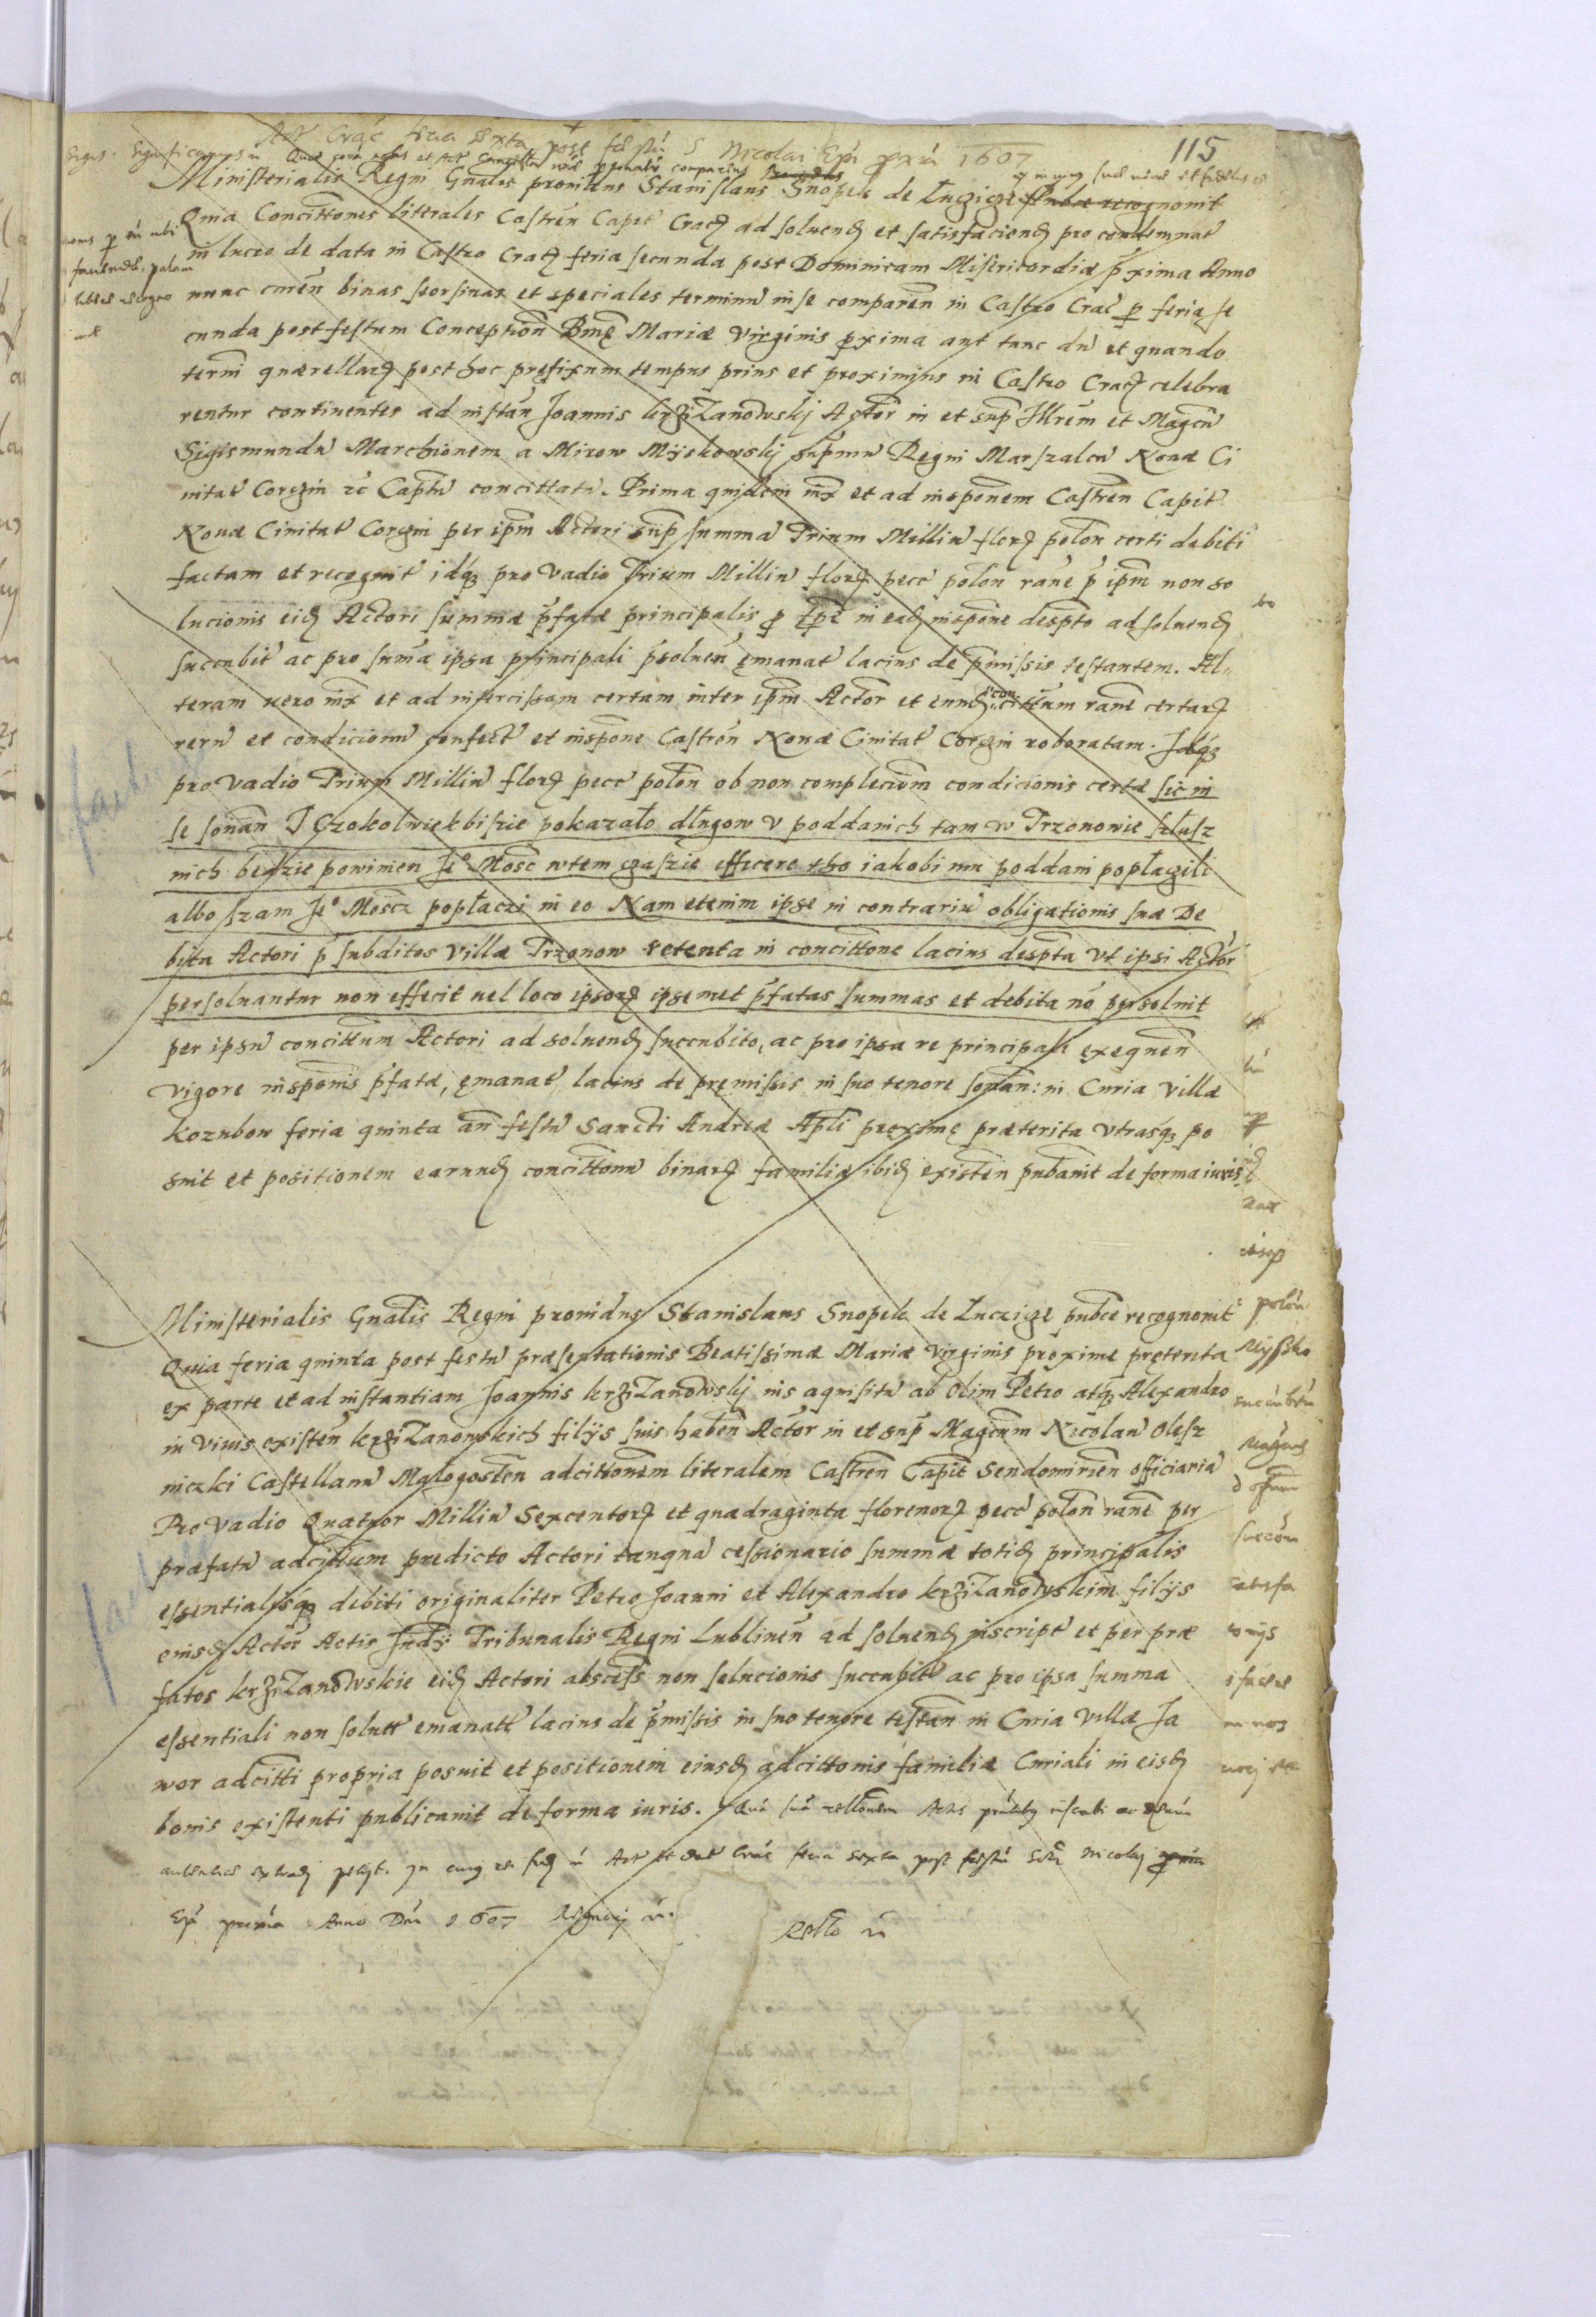 Act Crac feria sexta post festū S Nicolai Epi proxā 1607
115
Significamus
Ministerialis Regni Gnalis providus Stanislaus Snopek de Luczicze recognovit
Quia Concittones literales Castren Capit Crac ad solvend et satisfaciend pro condemnat
in lucro de data in Castro Crac feria secunda post Dominicam Misericordiæ pxima Anno
nunc curen binas seorsivas et speciales terminū in se comparen in Castro Crac p feria se
cunda post festum Conception Bmę Mariæ Virginis pxima aut tunc dū et quando
termi quærellarz post hoc pręfixum tempus prius et proximius in Castro Crac celebra
rentur continentes ad instan Joannis krziżanowskj Actor in et sup Illrem et Magcū
Sigismundū Marchionem a Mirow Myskowskj supmū Regni Marszalcū Novæ Ci
vitat Corczin zc Captū concittatū. Prima quidem inx et ad insponem Castren Capit
Novæ Civitat Corczin per ipm Actori sup summa Trium Milliū florz polon certi debiti
factam et recognit idqz pro Vadio Trium Milliū florz pecc polon rane p ipm non so
lucionis eid Actori summæ pfatæ principalis p tpe in ead inspone despto ad solvend
succubit ac pro suma ipsa principali psoluen ęmanat lacius de pmissis testantem. Al-
teram vero inx et ad intercissam certam inter ipm Actor et eund con cittum rane certarz
rerū et condicionū confect et inspone Castren Novæ Civitat Corczin roboratam. Idqz
pro Vadio Trium Milliū florz pecc polon ob non complecionem condicionis certæ sic in
se sonan I Czokolwiek bi szie pokazało długow v poddanich tam w Trzonowie słusz
nich będzie powinien Je° Mosc wtem czaszie efficere tho iakobi mu poddani popłaczili
albo szam Je° Moscz popłaczi in eo Nam etenim ipse in contrariū obligationis suæ De
bita Actori p subditos Villæ Trzonow retenta in concittone lacius despta ut ipsi Actor
persoluantur non effecit uel loco ipsorz ipsemet pfatas summas et debita nō persoluit
per ipsū concittum Actori ad soluend succubito, ac pro ipsa re principali exequen
vigore insponis pfatæ, ęmanat, lacius de pręmissis in suo tenore sonan: in Curia Villæ
Kozubow feria quinta an festū Sancti Andreæ Apli proxime præterita utrasqz po
suit et positionem earund concittonū binarz familiæ ibid existen pubavit de forma iuris
Ministerialis Gnalis Regni providus Stanislaus Snopek de Luczicze pubce recognovit
Quia feria quinta post festū præsentationis Beatissimæ Mariæ Virginis proxime pręterita
ex parte et ad instantiam Joannis krziżanowskj ius aquisitū ab olim Petro atqz Alexandro
in vivis existen krziżanowskich filijs suis haben Actor in et sup Magcum Nicolaū Olesz
niczki Castellanū Malogosten adcittonem literalem Castren Capit Sendomirien officiariā
Pro Vadio Quatuor Milliū Sexcentorz et quadraginta florenorz pecc polon rane per
præfatū adcittum prædicto Actori tanquā cessionario summæ totid principalis
essentialisqz debiti originaliter Petro Joanni et Alexandro krziżanowskim filijs
eiusd Actor Actis Judij Tribunalis Regni Lublinen ad soluend inscript et per præ
fatos krziżanowskie eid Actori abscess non solucionis succubit ac pro ipsa summa
essentiali non solutt emanatt lacius de pmissis in suo tenore testan in Curia Villæ Ja
wor adcitti propria posuit et positionem eiusd adcittonis familiæ Curiali in eisd
bonis existenti publicavit de forma iuris. Quā suā rellonem Actis
feria sexta post festū Scti Nicolaj
Epi proxia Anno Dni 1607
Rello